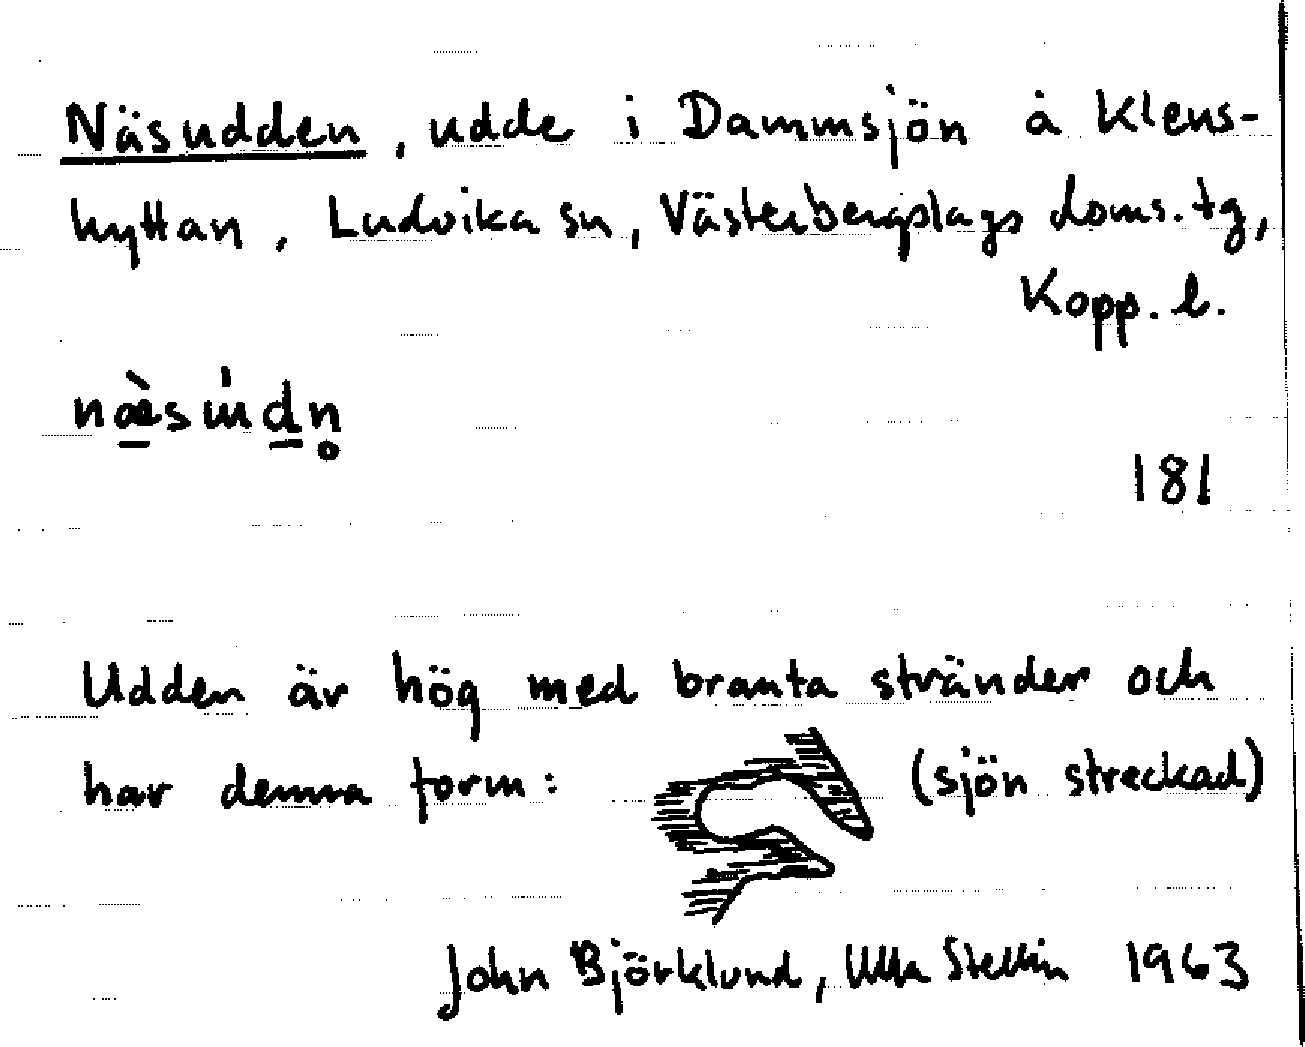 Näsudden, udde i Dammsjön å Klens-
hyttan, Ludvika sn, Västerbergslags doms. tg,
Kopp. l.
181
Udden är hög med branta stränder och
har denna form: (sjön streckad)
John Björklund, Ulla Stellin 1963